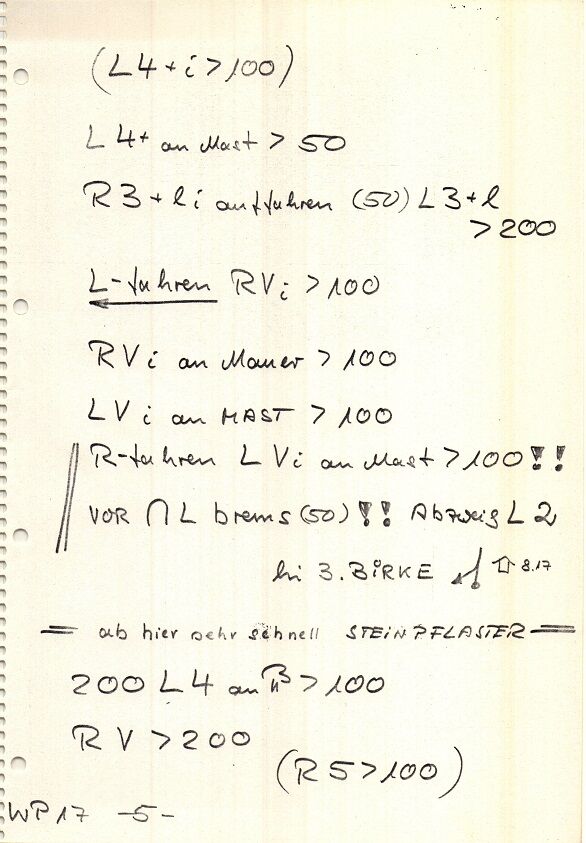 (L4+i>100)
L4+ an Mast > 50
R3+li auffahren (50) L3+l
>200
L-fahren RVi >100
RVi an Mauer > 100
LVi an MAST > 100
R-fahren LVi an Mast >100!!
VOR ∩ L brems (50) !! Abzweig L2
bei 3. BIRKE ⇧ 8.17
= ab hier sehr schnell STEINPFLASTER =
200 L4 an >100
RV >200
(R5>100)
WP17 -5-